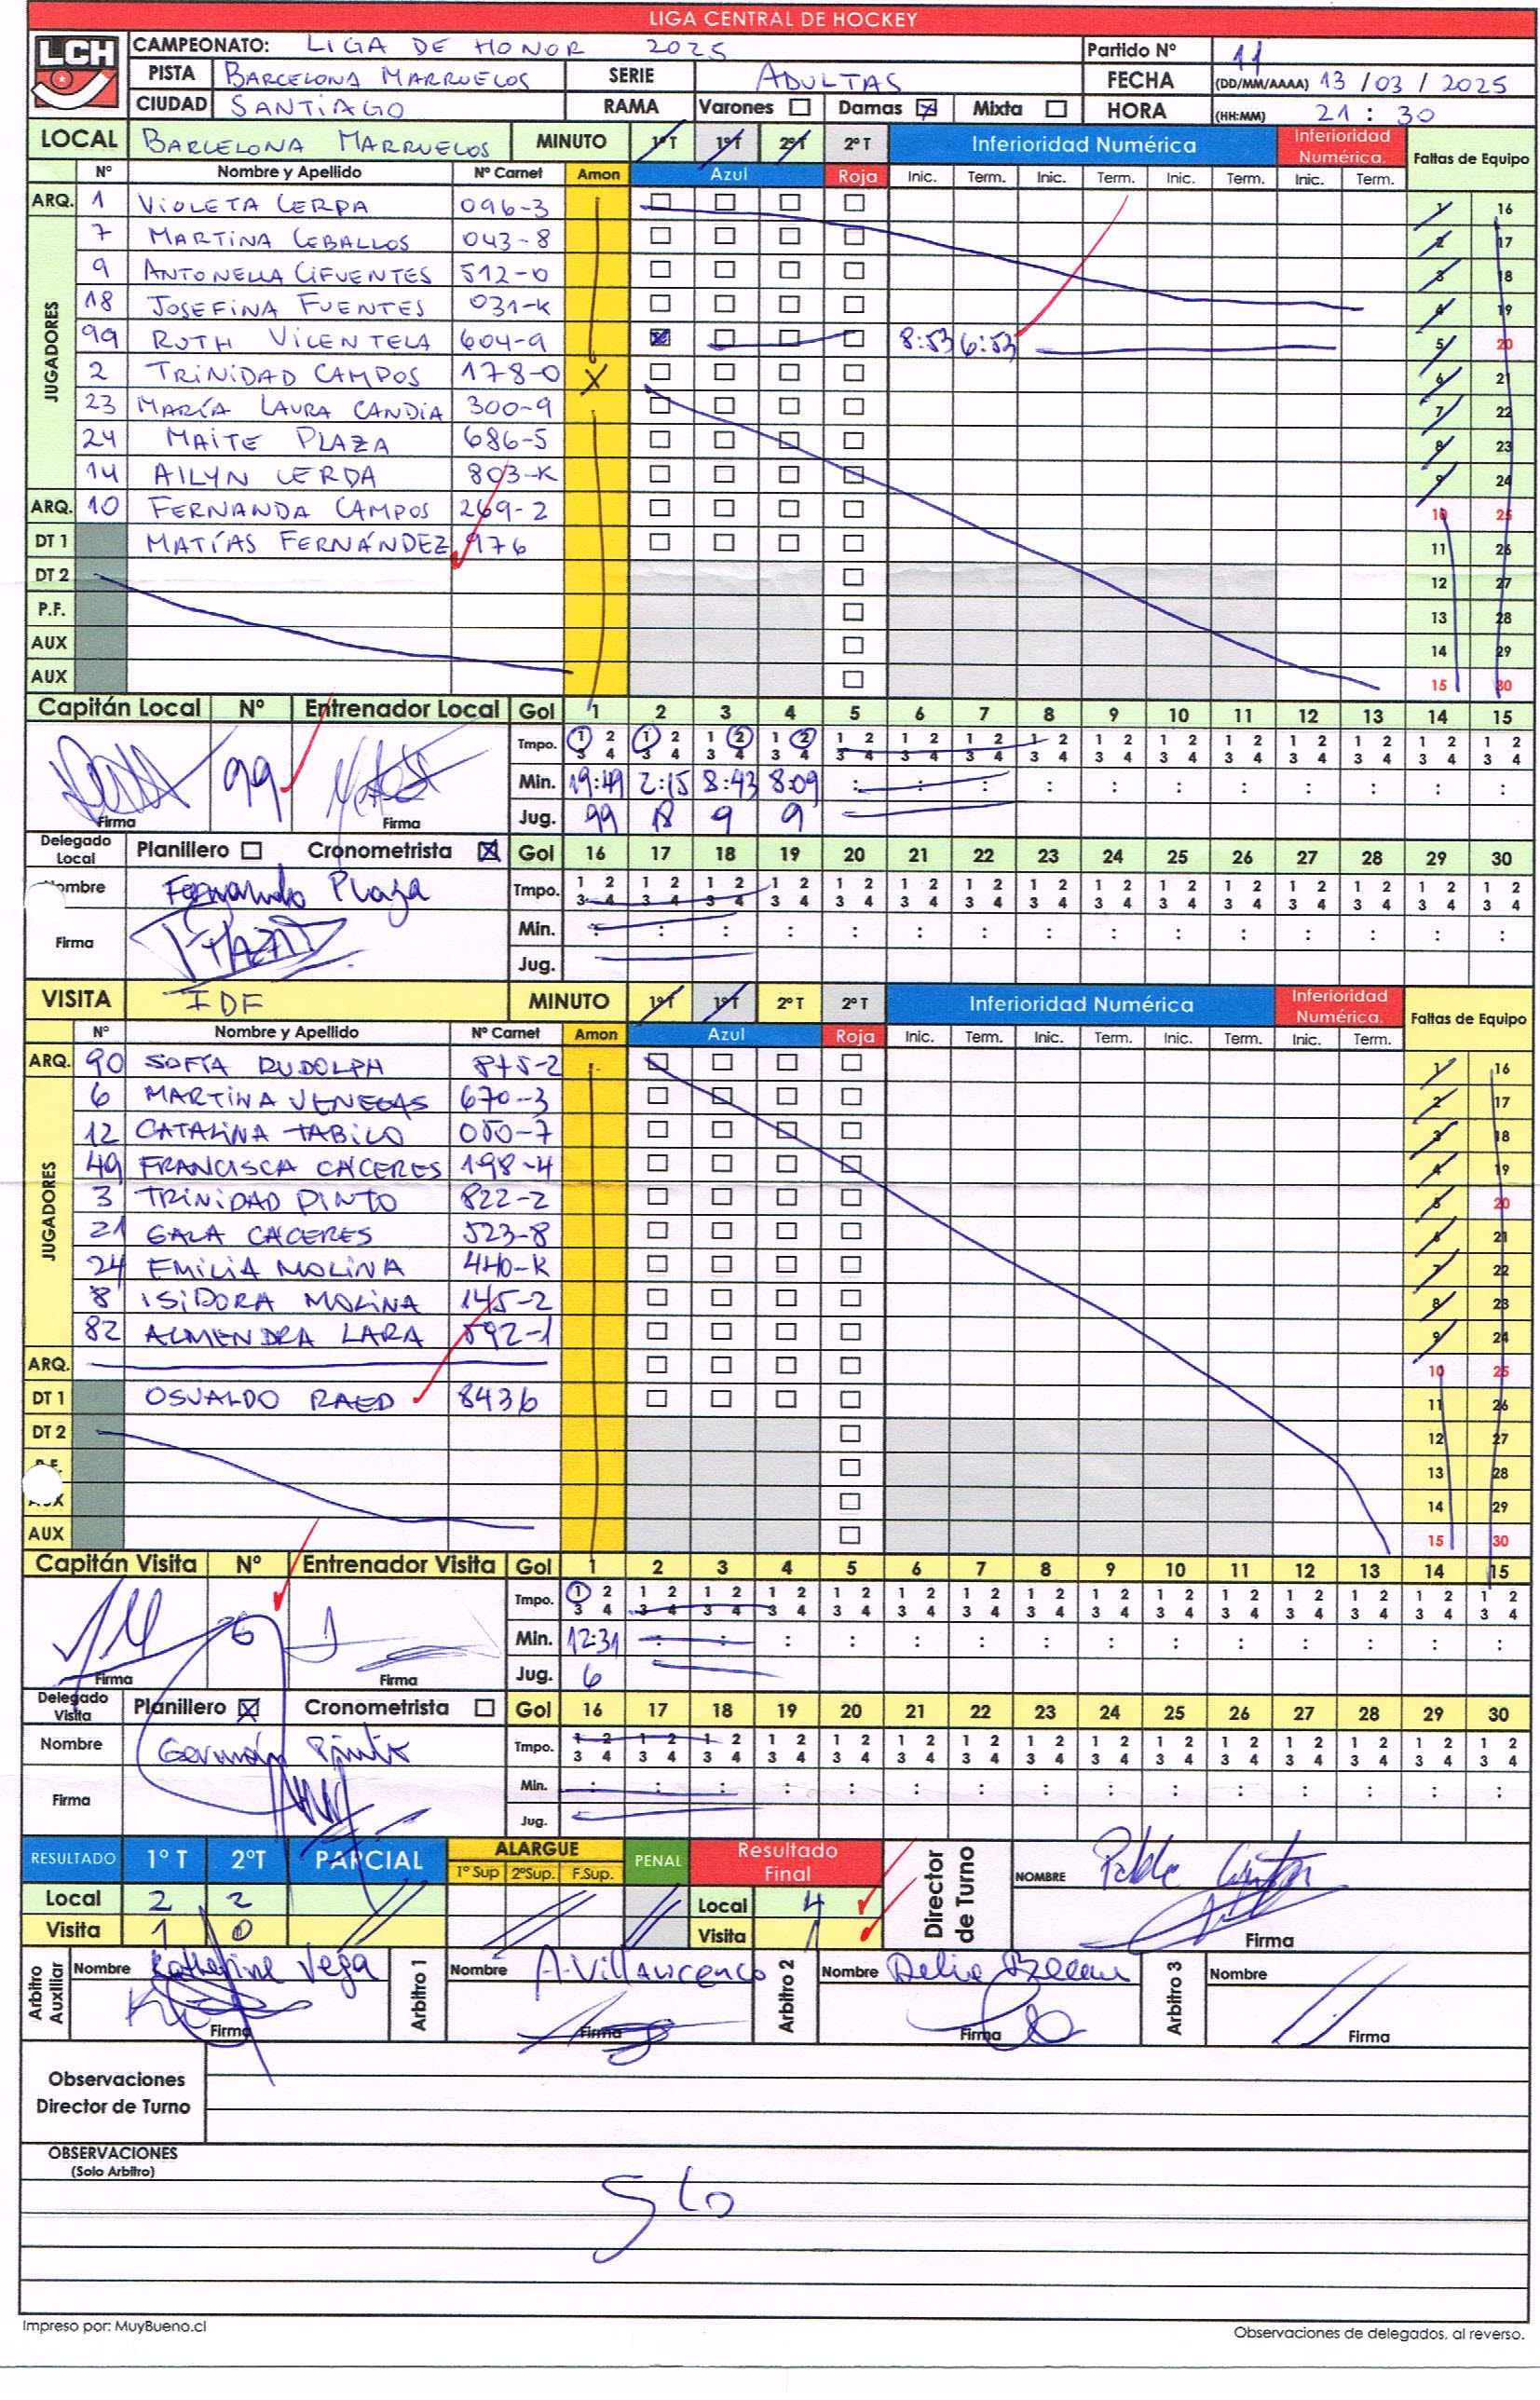 LIGA CENTRAL DE HOCKEY
LCH
CAMPEONATO: LIGA DE HONOR 2025 Partido Nº 11
PISTA BARCELONA MARRUELOS SERIE ADULTAS FECHA (DD/MM/AAAA) 13 / 03 / 2025
CIUDAD SANTIAGO RAMA Varones Damas Mixta HORA (HH:MM) 21 : 30
LOCAL BARCELONA MARRUELOS MINUTO 1ºT 1ºT 2ºT 2ºT Inferioridad Numérica Inferioridad Numérica. Faltas de Equipo
Nº Nombre y Apellido Nº Carnet Amon Azul Roja Inic. Term. Inic. Term. Inic. Term. Inic. Term.
JUGADORES
ARQ. 1 VIOLETA CERPA 096-3 1 16
7 MARTINA CEBALLOS 043-8 2 17
9 ANTONELLA CIFUENTES 512-0 3 18
18 JOSEFINA FUENTES 031-K 4 19
99 RUTH VICENTELA 604-9 8:53 6:53 5 20
2 TRINIDAD CAMPOS 178-0 X 6 21
23 MARÍA LAURA CANDIA 300-9 7 22
24 MAITE PLAZA 686-5 8 23
14 AILYN CERDA 803-K 9 24
ARQ. 10 FERNANDA CAMPOS 269-2 10 25
DT 1 MATÍAS FERNÁNDEZ 976 11 26
DT 2 12 27
P.F. 13 28
AUX 14 29
AUX 15 30
Capitán Local Nº Entrenador Local Gol 1 2 3 4 5 6 7 8 9 10 11 12 13 14 15
Tmpo. 1 2 1 2 1 2 1 2 1 2 1 2 1 2 1 2 1 2 1 2 1 2 1 2 1 2 1 2 1 2
3 4 3 4 3 4 3 4 3 4 3 4 3 4 3 4 3 4 3 4 3 4 3 4 3 4 3 4 3 4
99 Min. 19:49 2:15 8:43 8:09 : : : : : : : : : : :
Firma Firma Jug. 99 18 9 9
Delegado Local Planillero Cronometrista Gol 16 17 18 19 20 21 22 23 24 25 26 27 28 29 30
Nombre Fernando Plaza Tmpo. 1 2 1 2 1 2 1 2 1 2 1 2 1 2 1 2 1 2 1 2 1 2 1 2 1 2 1 2 1 2
3 4 3 4 3 4 3 4 3 4 3 4 3 4 3 4 3 4 3 4 3 4 3 4 3 4 3 4 3 4
Firma Min. : : : : : : : : : : : : : : :
Jug.
VISITA IDF MINUTO 1ºT 1ºT 2ºT 2ºT Inferioridad Numérica Inferioridad Numérica. Faltas de Equipo
Nº Nombre y Apellido Nº Carnet Amon Azul Roja Inic. Term. Inic. Term. Inic. Term. Inic. Term.
JUGADORES
ARQ. 90 SOFÍA RUDOLPH 875-2 1 16
6 MARTINA VENEGAS 670-3 2 17
12 CATALINA TABILO 050-7 3 18
49 FRANCISCA CÁCERES 198-4 4 19
3 TRINIDAD PINTO 822-2 5 20
21 GALA CÁCERES 523-8 6 21
24 EMILIA MOLINA 440-K 7 22
8 ISIDORA MOLINA 145-2 8 23
82 ALMENDRA LARA 592-1 9 24
ARQ. 10 25
DT 1 OSVALDO RAED 8436 11 26
DT 2 12 27
P.F. 13 28
AUX 14 29
AUX 15 30
Capitán Visita Nº Entrenador Visita Gol 1 2 3 4 5 6 7 8 9 10 11 12 13 14 15
Tmpo. 1 2 1 2 1 2 1 2 1 2 1 2 1 2 1 2 1 2 1 2 1 2 1 2 1 2 1 2 1 2
3 4 3 4 3 4 3 4 3 4 3 4 3 4 3 4 3 4 3 4 3 4 3 4 3 4 3 4 3 4
6 Min. 12:31 : : : : : : : : : : : : : :
Firma Firma Jug. 6
Delegado Visita Planillero Cronometrista Gol 16 17 18 19 20 21 22 23 24 25 26 27 28 29 30
Nombre Germán Pinto Tmpo. 1 2 1 2 1 2 1 2 1 2 1 2 1 2 1 2 1 2 1 2 1 2 1 2 1 2 1 2 1 2
3 4 3 4 3 4 3 4 3 4 3 4 3 4 3 4 3 4 3 4 3 4 3 4 3 4 3 4 3 4
Firma Min. : : : : : : : : : : : : : : :
Jug.
RESULTADO 1º T 2ºT PARCIAL ALARGUE 1º Sup 2ºSup. F.Sup. PENAL Resultado Final Director de Turno NOMBRE Pablo
Local 2 2 Local 4
Visita 1 0 Visita 1 Firma
Arbitro Auxiliar Nombre Katherine Vega Arbitro 1 Nombre A. Villavicencio Arbitro 2 Nombre Delia Arbitro 3 Nombre
Firma Firma Firma Firma
Observaciones
Director de Turno
OBSERVACIONES
(Solo Arbitro)
S/O
Impreso por: MuyBueno.cl
Observaciones de delegados, al reverso.